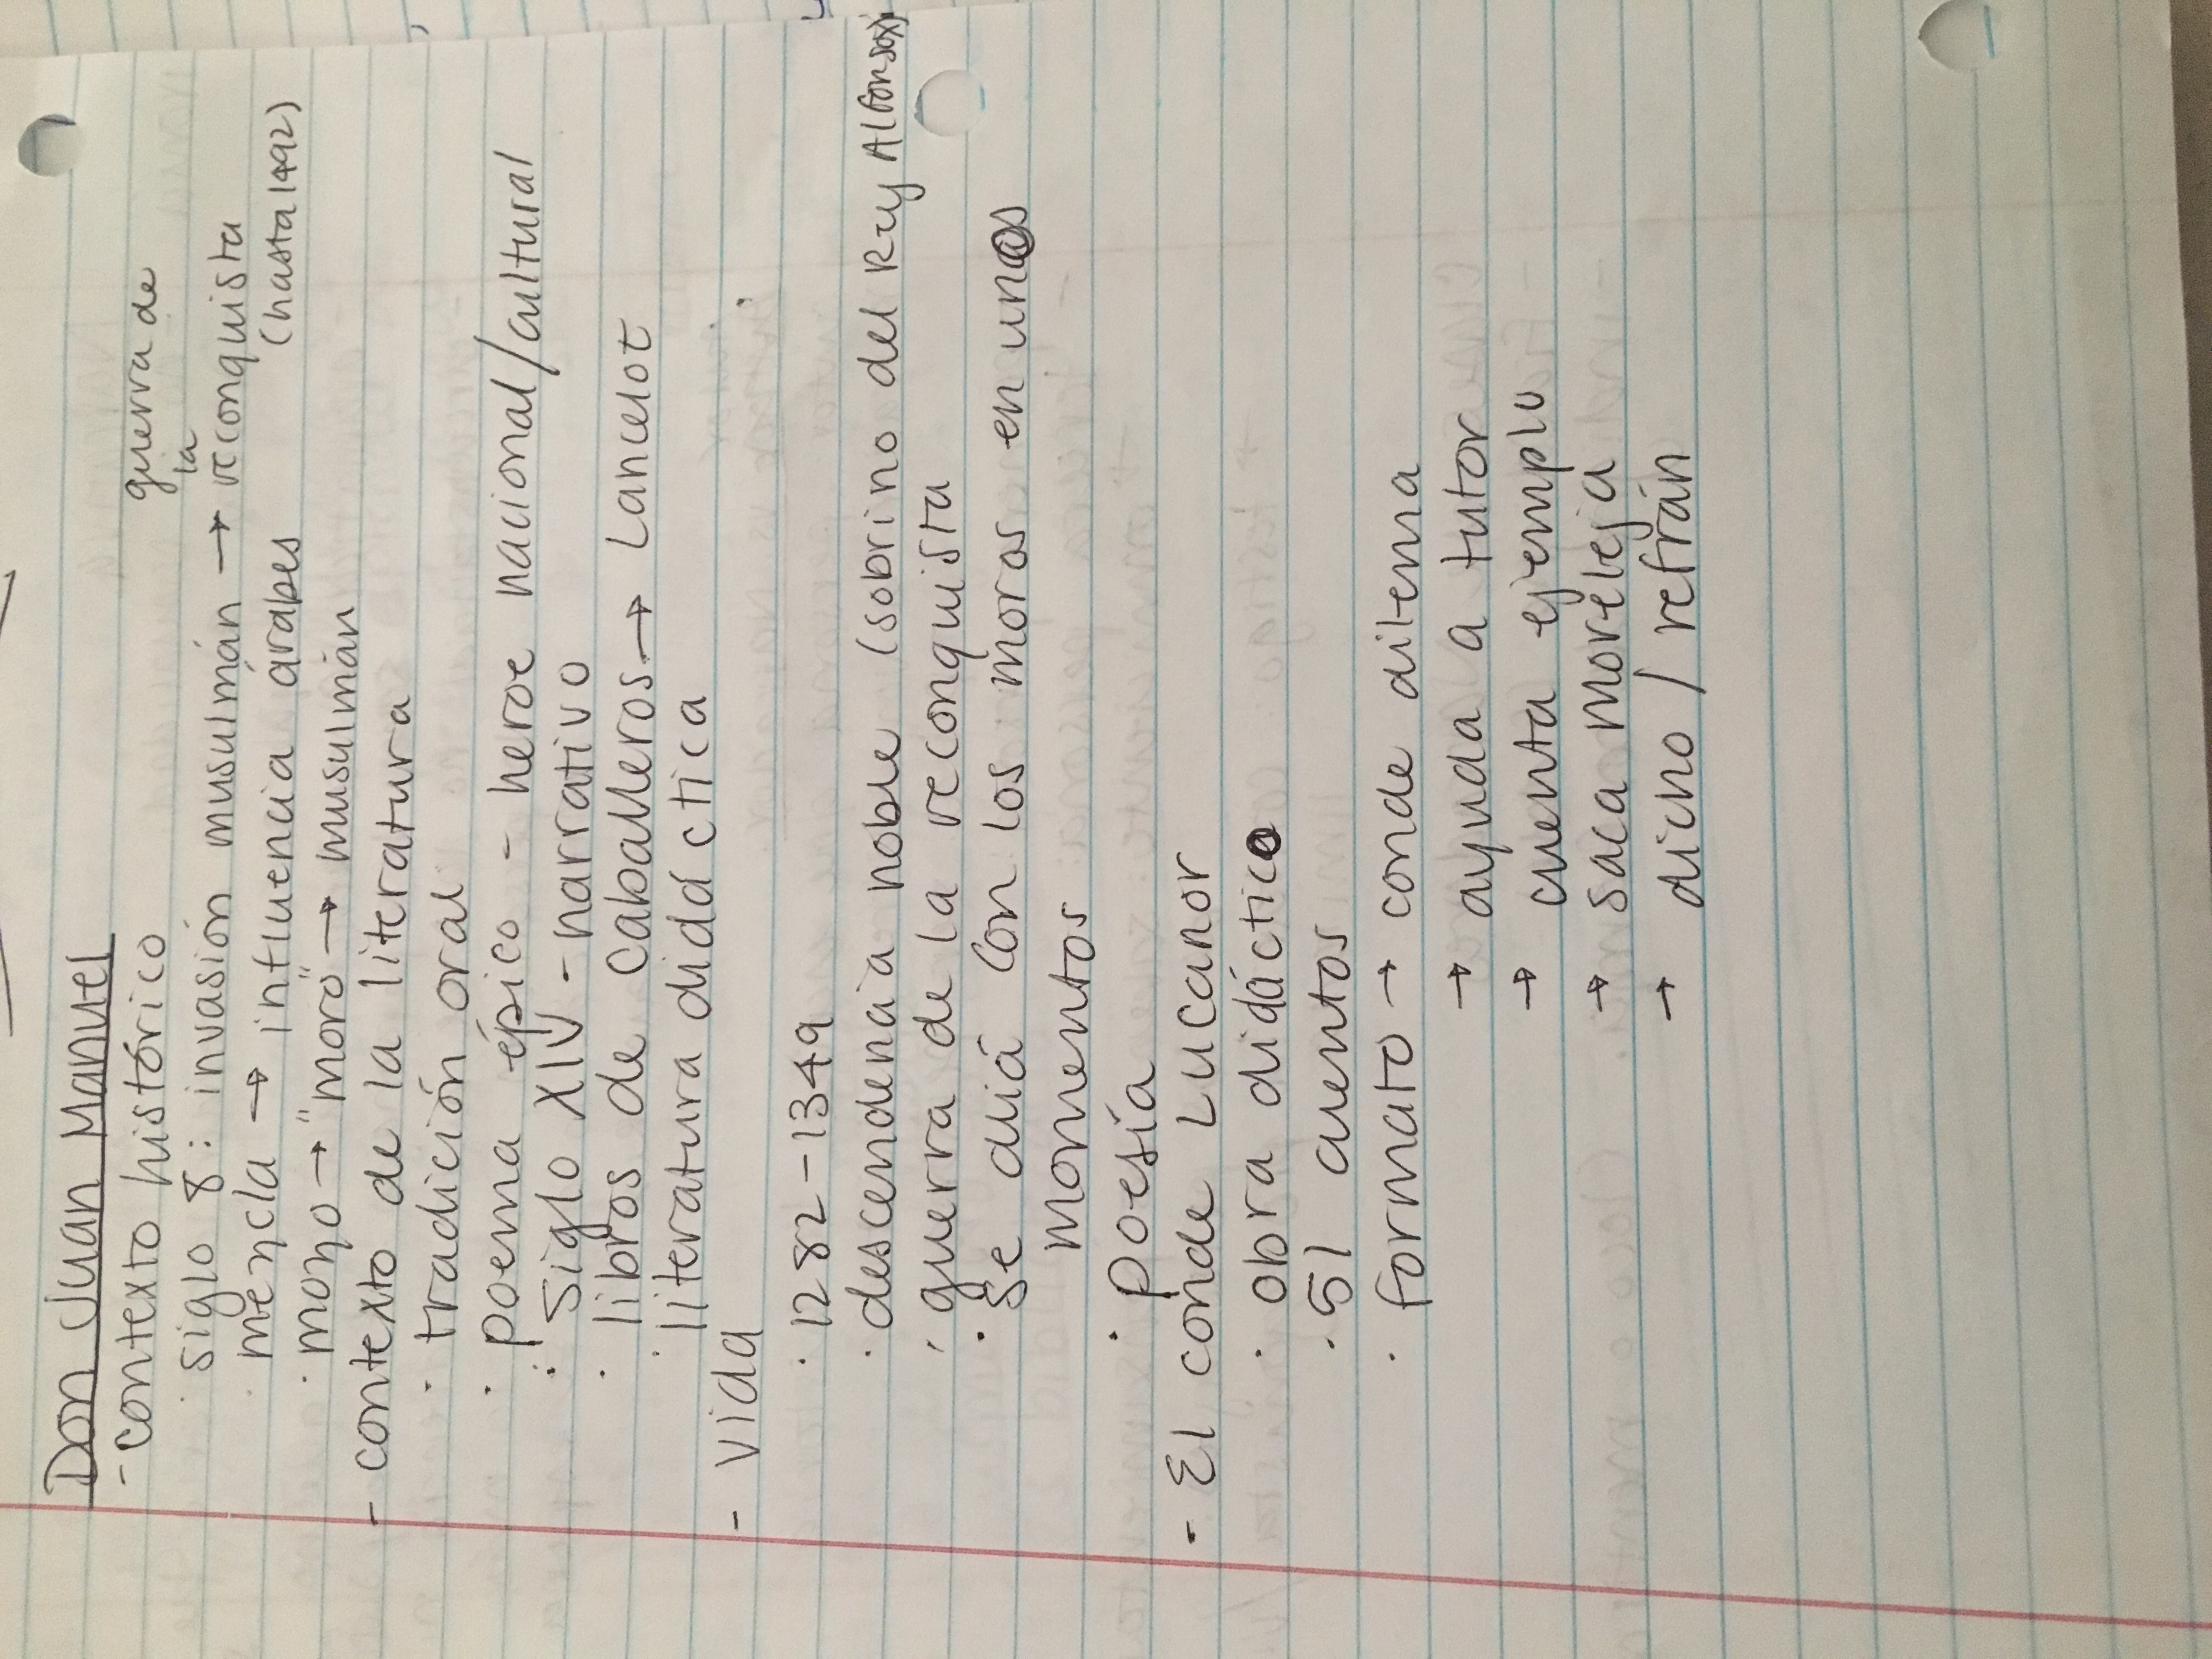 Don Juan Manuel
- contexto histórico
· siglo 8: invasión musulmán → guerra de la reconquista
(hasta 1492)
· mezcla → influencia árabes
· mozo → "moro" → musulmán
- contexto de la literatura
· tradición oral
· poema épico - heroe nacional/cultural
· siglo XIV - narrativo
· libros de caballeros → Lancelot
· literatura didáctica
- vida
· 1282-1349
· descendencia noble (sobrino del Rey Alfonso X)
· guerra de la reconquista
· se aliá con los moros en unos
momentos
· poesía
- El conde Lucanor
· obra didáctico
· 51 cuentos
· formato → conde dilema
→ ayuda a tutor
→ cuenta ejemplo
→ saca moreleja
→ dicho / refrán